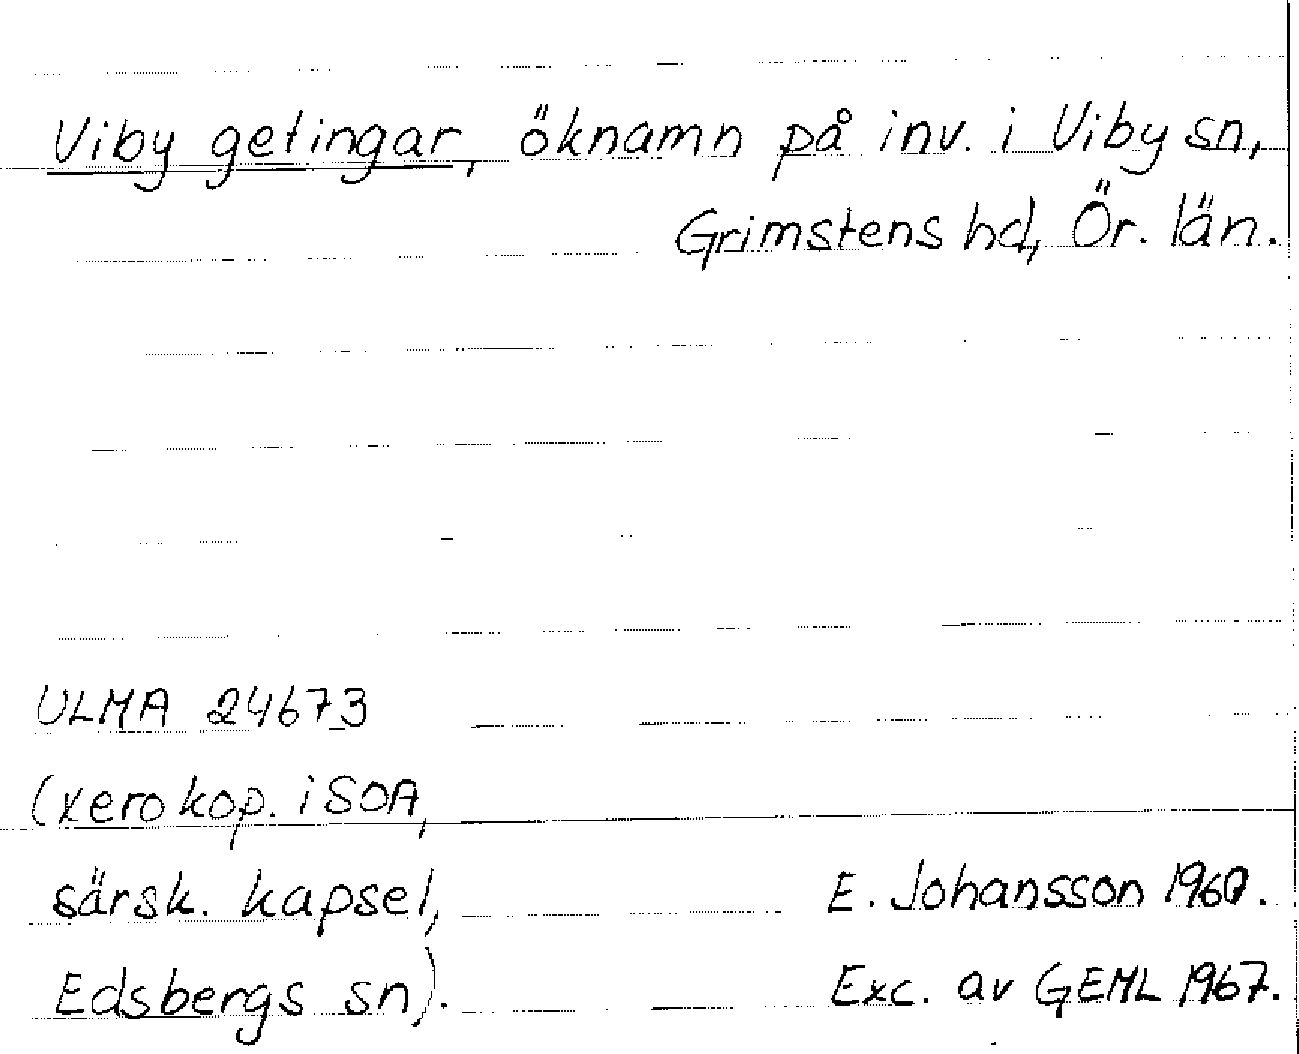 Viby getingar, öknamn på inv. i Viby sn,
Grimstens hd, Ör. län.
ULMA 24673
(xerokop. i SOA,
särsk. kapsel,
Edsbergs sn).
E. Johansson 1960.
Exc. av GEML 1967.